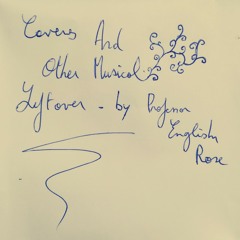 Covers And
Other Musical
Leftover - by Professor
English
Rose